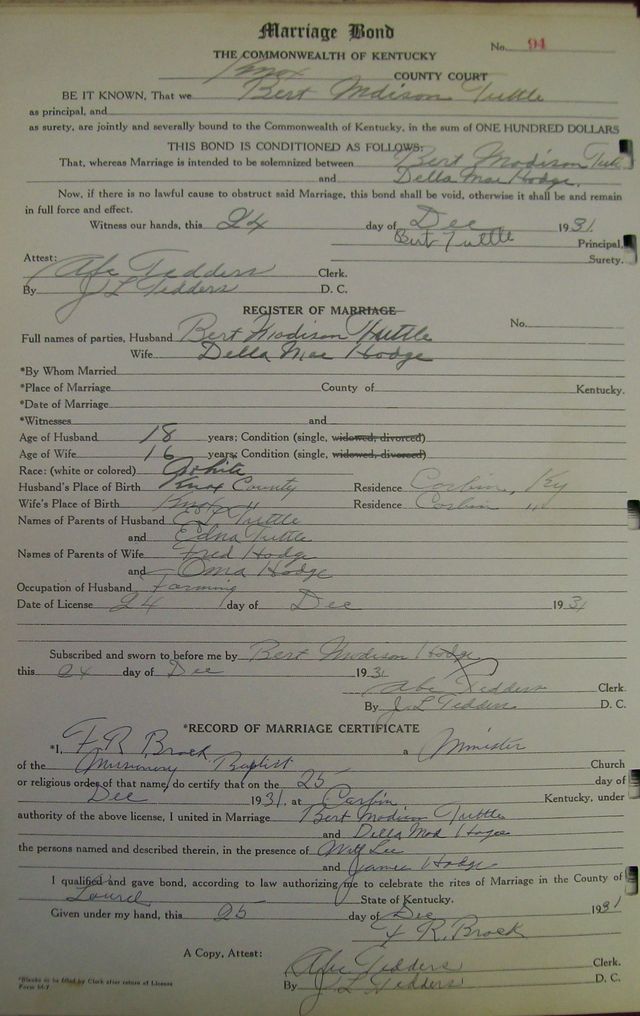 Marriage Bond
No. 94
THE COMMONWEALTH OF KENTUCKY
Knox COUNTY COURT
BE IT KNOWN, That we Bert Madison Tuttle
as principal, and
as surety, are jointly and severally bound to the Commonwealth of Kentucky, in the sum of ONE HUNDRED DOLLARS
THIS BOND IS CONDITIONED AS FOLLOWS:
That, whereas Marriage is intended to be solemnized between Bert Madison Tut
and Della Mae Hodge.
Now, if there is no lawful cause to obstruct said Marriage, this bond shall be void, otherwise it shall be and remain
in full force and effect.
Witness our hands, this 24 day of Dec 1931
Bert Tuttle Principal,
Surety.
Attest:
Abe Tedders Clerk.
By J L Tedders D. C.
REGISTER OF MARRIAGE
No.
Full names of parties, Husband Bert Madison Tuttle
Wife Della Mae Hodge
*By Whom Married
*Place of Marriage County of Kentucky.
*Date of Marriage
*Witnesses and
Age of Husband 18 years; Condition (single, widowed, divorced)
Age of Wife 16 years; Condition (single, widowed, divorced)
Race: (white or colored) White
Husband's Place of Birth Knox County Residence Corbin, Ky
Wife's Place of Birth Knox " Residence Corbin "
Names of Parents of Husband Tuttle
and Edna Tuttle
Names of Parents of Wife Fred Hodge
and Oma Hodge
Occupation of Husband Farming
Date of License 24 day of Dec 1931
Subscribed and sworn to before me by Bert Madison Hodge
this 24 day of Dec 1931
Abe Tedders Clerk.
By J L Tedders D. C.
*RECORD OF MARRIAGE CERTIFICATE
*I, F R Brock a Minister
of the Missionary Baptist Church
or religious order of that name, do certify that on the 25 day of
Dec 1931, at Corbin Kentucky, under
authority of the above license, I united in Marriage Bert Madison Tuttle
and Della Mae
the persons named and described therein, in the presence of Will Lee
and James Hodge
I qualified and gave bond, according to law authorizing me to celebrate the rites of Marriage in the County of
Laurel State of Kentucky.
Given under my hand, this 25 day of Dec 1931
F R. Brock
A Copy, Attest:
Abe Tedders Clerk.
By J L Tedders D. C.
*Blanks to be filled by Clerk after return of License